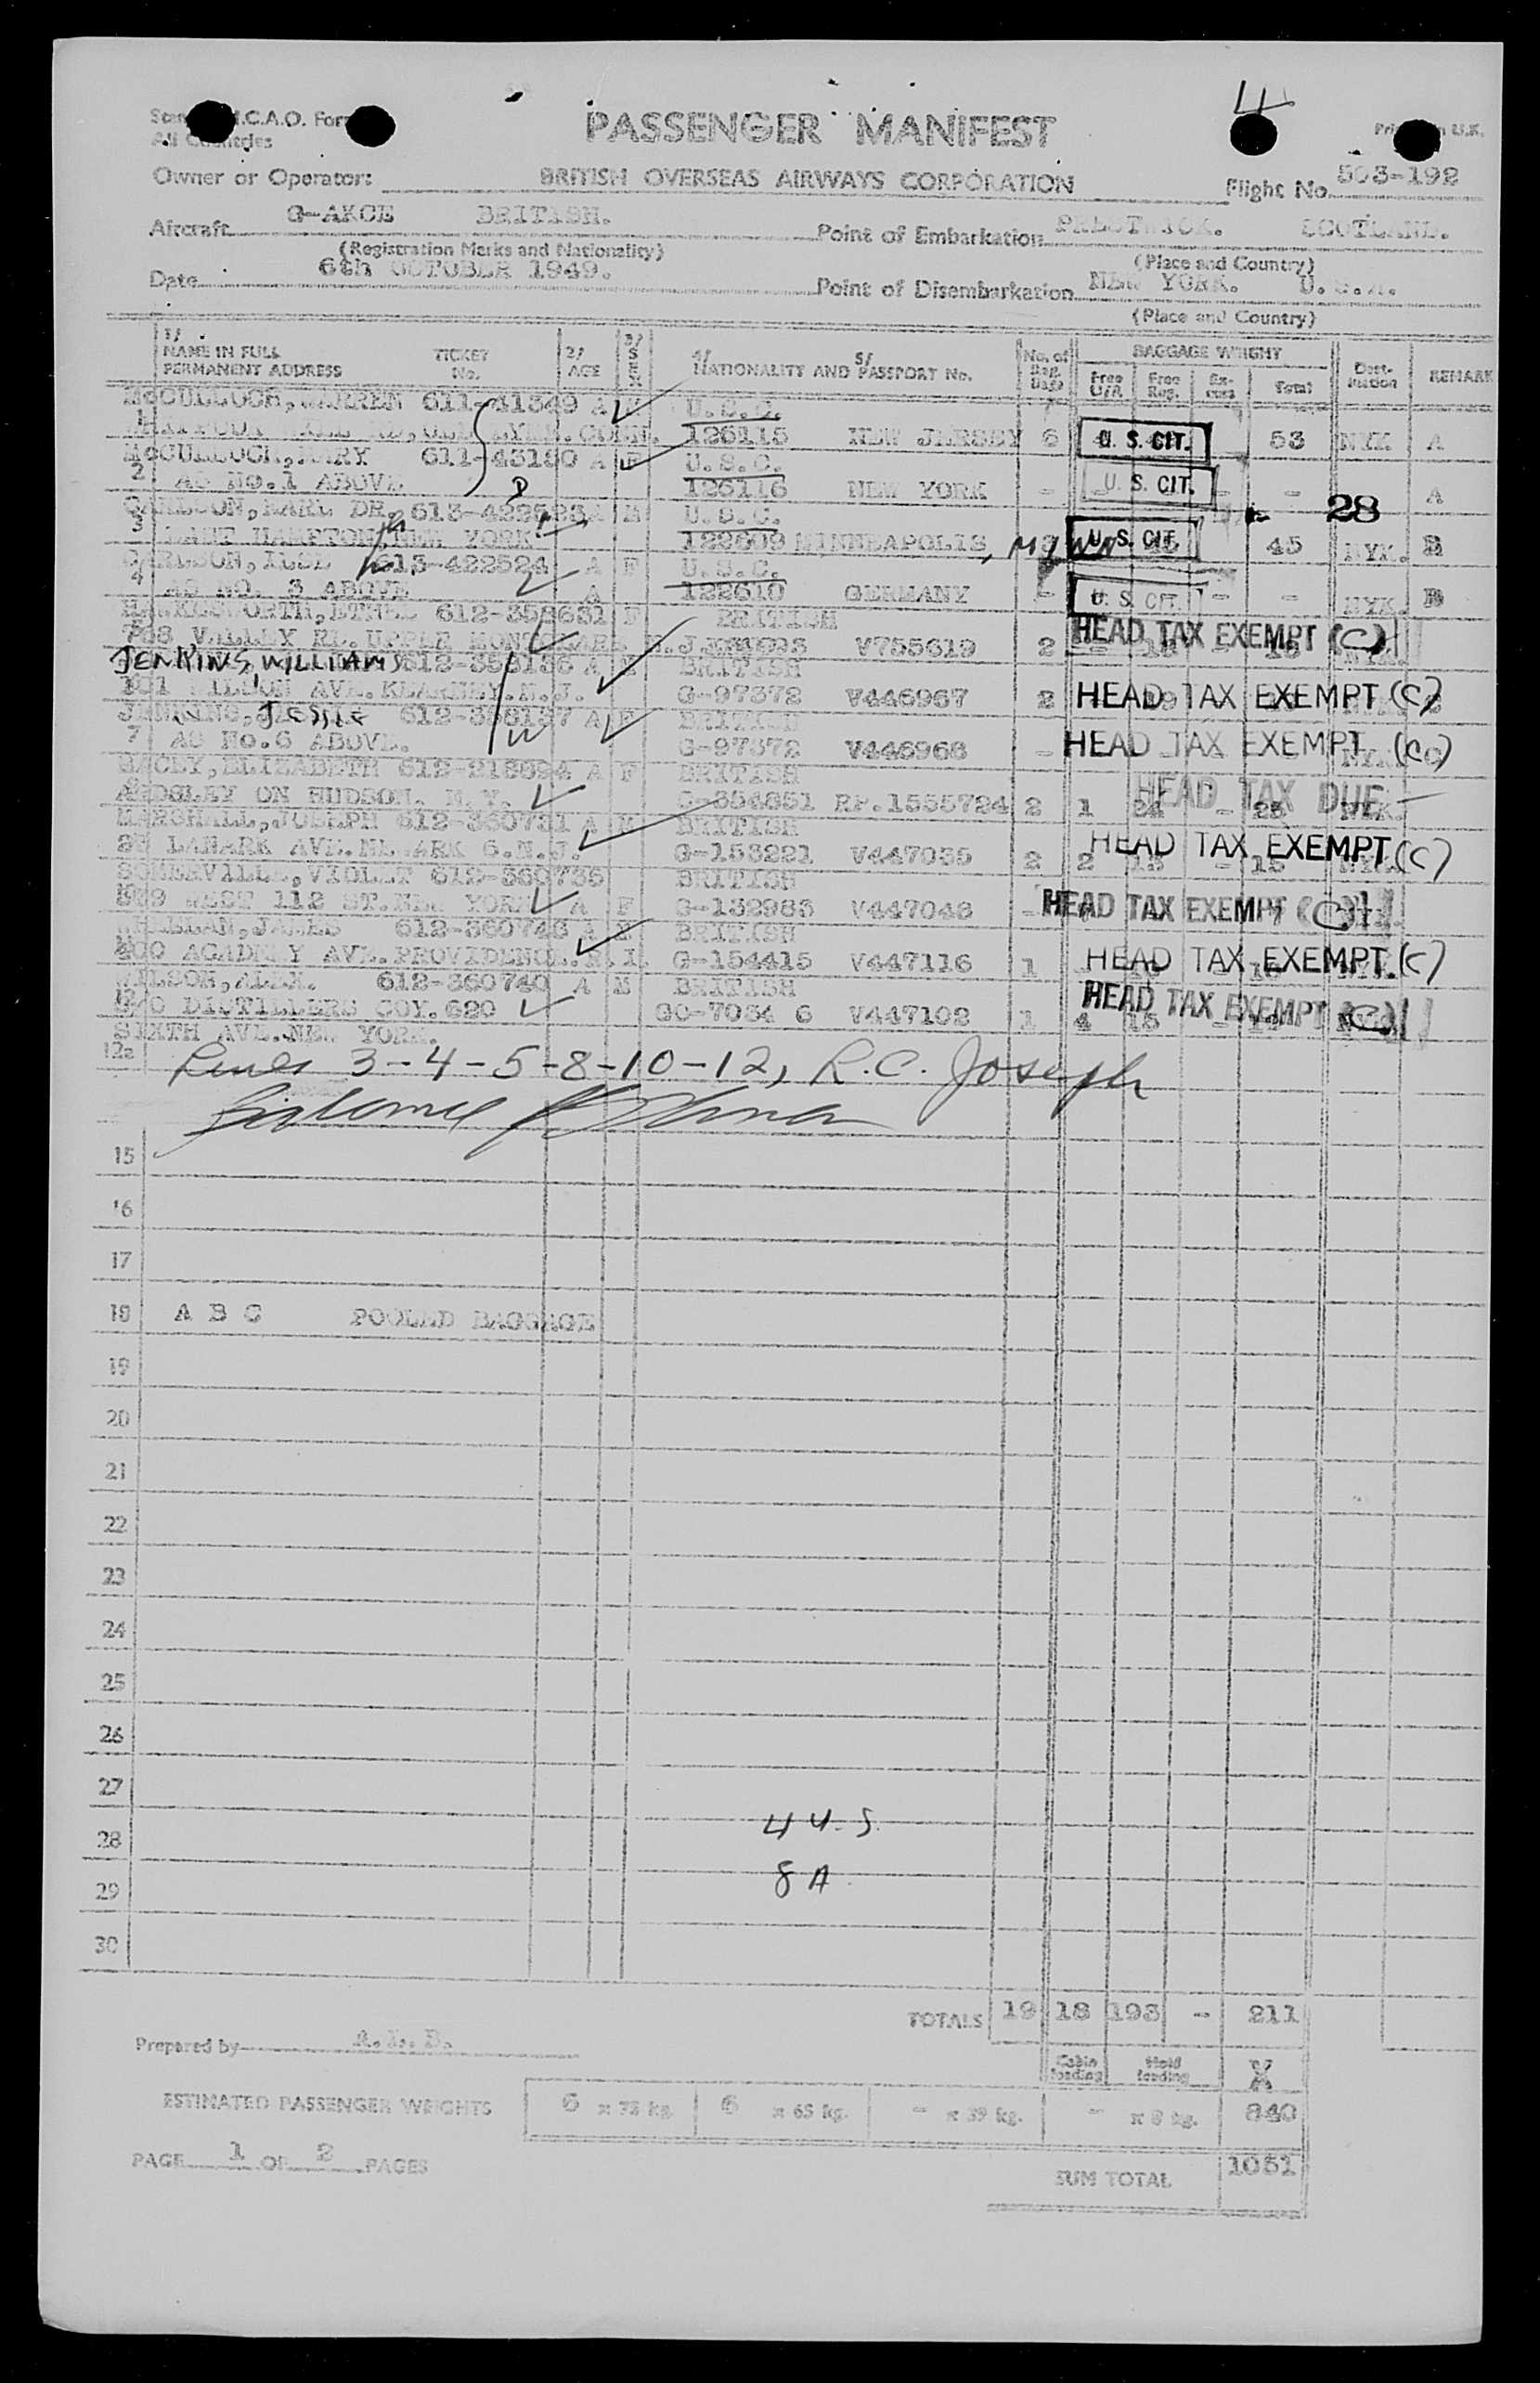 4
I.C.A.O. Form
All Countries
PASSENGER MANIFEST
Printed in U.K.
Owner or Operator: BRITISH OVERSEAS AIRWAYS CORPORATION Flight No. 503-192
Aircraft G-AKCE BRITISH. Point of Embarkation PRESTWICK. SCOTLAND.
(Registration Marks and Nationality) (Place and Country)
Date 6th OCTOBER 1949. Point of Disembarkation NEW YORK. U.S.A.
(Place and Country)
1/ NAME IN FULL PERMANENT ADDRESS TICKET No. 2/ AGE 3/ SEX 4/ NATIONALITY AND 5/ PASSPORT No. No. of BAGGAGE WEIGHT Free Free Reg. Excess Total Destination REMARK
McCULLOCH, WARREN 611-41349 A M U.S.C.
1 OLD LYME. CONN. 126115 NEW JERSEY 6 U. S. CIT. 53 NYK A
McCULLOCH, MARY 611-43180 A F U.S.C.
2 AS No.1 ABOVE 126116 NEW YORK - U. S. CIT. - - A
CARLSON, KARL DR. 613-422523 A M U.S.C. 28
3 EAST HAMPTON, NEW YORK 122609 MINNEAPOLIS, MINN U. S. CIT. 45 NYK. B
CARLSON, ILSE 613-422524 A F U.S.C.
4 AS NO. 3 ABOVE A 122610 GERMANY - U. S. CIT. - - NYK. B
HAWKESWORTH, ETHEL 612-358631 F BRITISH
5 VALLEY RD. UPPER MONTCLAIR. N.J. V755619 2 HEAD TAX EXEMPT (C)
JENKINS, WILLIAM 612-358136 A M BRITISH
WILSON AVE. KEARNEY. N.J. G-97372 V446967 2 HEAD TAX EXEMPT (C)
JENKINS, JESSIE 612-358137 A F BRITISH
7 AS No.6 ABOVE. G-97372 V446968 - HEAD TAX EXEMPT (C)
ELIZABETH 612-218894 A F BRITISH
ARDSLEY ON HUDSON. N.Y. G-354851 RP.1555724 2 1 24 - 25 NYK. HEAD TAX DUE
MARSHALL, JOSEPH 612-360731 A M BRITISH
LANARK AVE. NEWARK 6. N.J. G-153221 V447035 2 2 13 - 15 HEAD TAX EXEMPT (C)
SOMERVILLE, VIOLET 612-360735 BRITISH
WEST 112 ST. NEW YORK A F G-132983 V447048 - HEAD TAX EXEMPT (C)
JAMES 612-360746 A M BRITISH
ACADEMY AVE. PROVIDENCE. R.I. G-154415 V447116 1 HEAD TAX EXEMPT. (C)
WILSON, ALEX. 612-360740 A M BRITISH
12 C/O DISTILLERS COY. 620 GC-7034 6 V447102 1 4 15 HEAD TAX EXEMPT (C)
SIXTH AVE. NEW YORK.
12a Lines 3-4-5-8-10-12, R.C. Joseph
15
16
17
18 A B C POOLED BAGGAGE
19
20
21
22
23
24
25
26
27
28 4 U.S.
29 8 A.
30
TOTALS 19 18 193 - 211
Prepared by
Cabin loading Hold loading
ESTIMATED PASSENGER WEIGHTS 6 x 75 kg. 6 x 65 kg. - x 39 kg. - x 8 kg. 840
PAGE 1 OF 2 PAGES
SUM TOTAL 1051